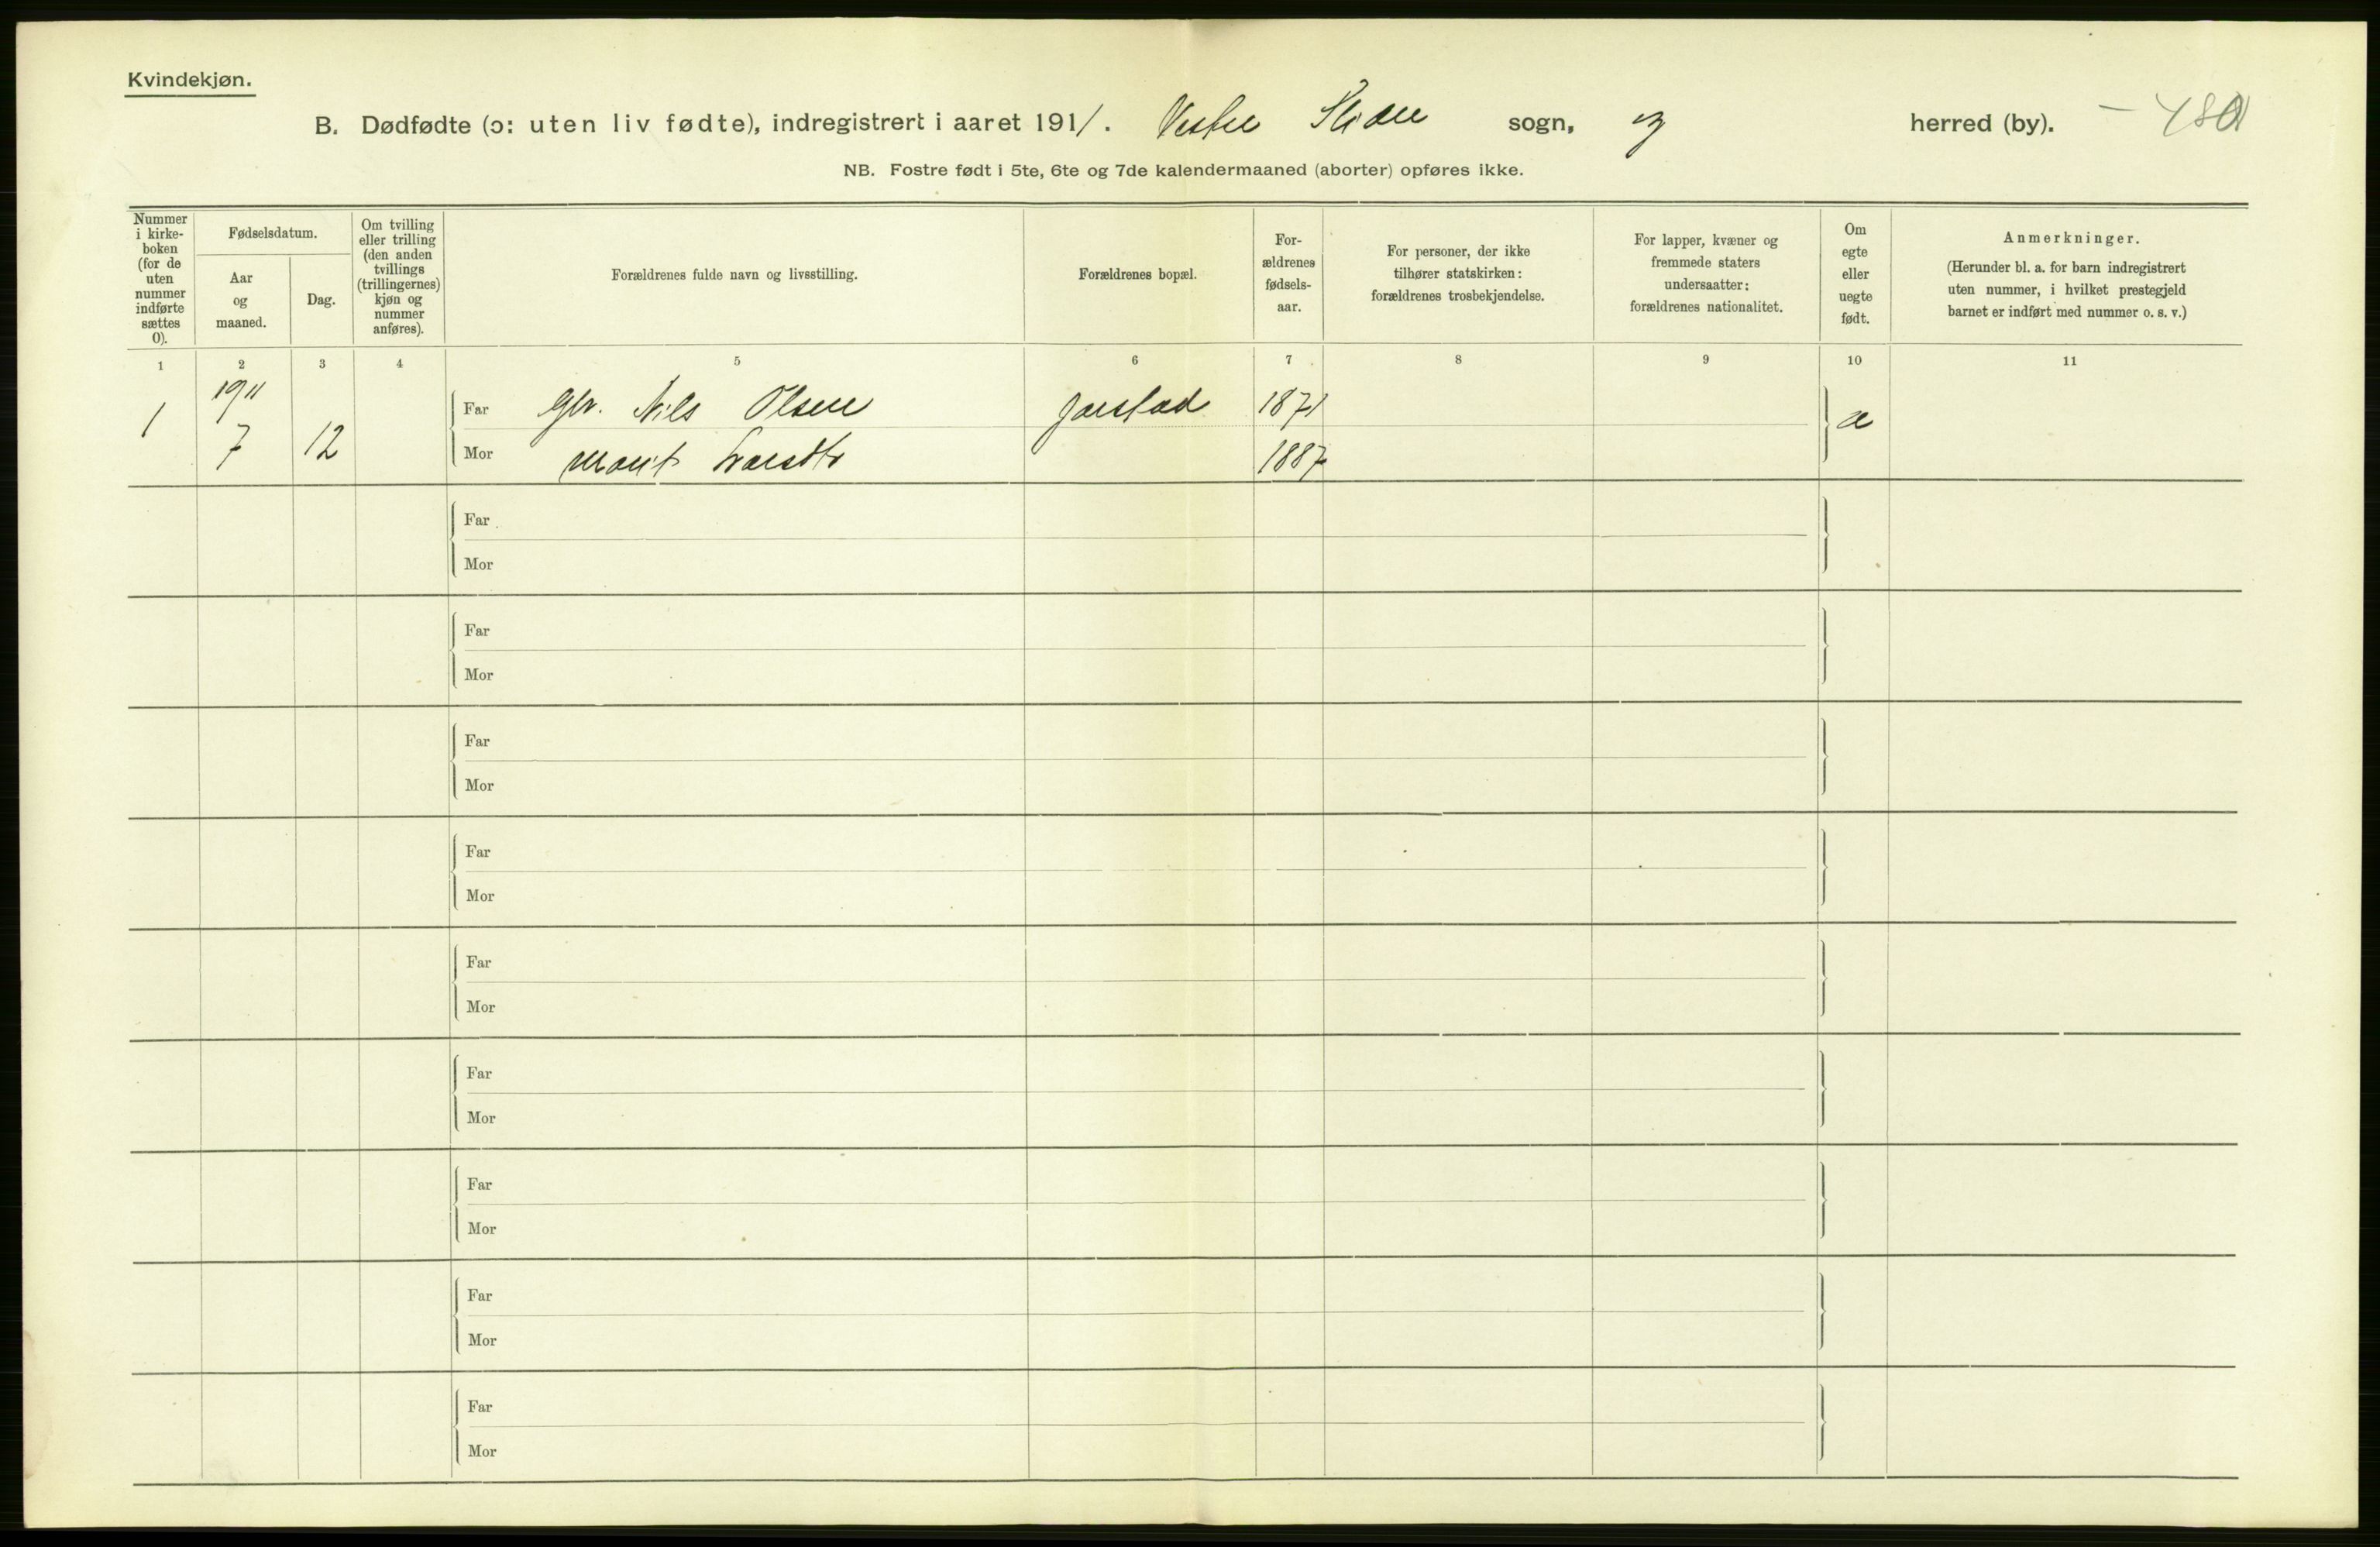 Kvindekjøn.
B. Dødfødte (ɔ: uten liv fødte), indregistrert i aaret 1911. Vestre Slidre sogn, og herred (by).
NB. Fostre født i 5te, 6te og 7de kalendermaaned (aborter) opføres ikke.
Nummer i kirke-boken (for de uten nummer indførte sættes 0).
Fødselsdatum.
Aar og maaned.
Dag.
Om tvilling eller trilling (den anden tvillings (trillingernes) kjøn og nummer anføres).
Forældrenes fulde navn og livsstilling.
Forældrenes bopæl.
For-ældrenes fødsels-aar.
For personer, der ikke tilhører statskirken: forældrenes trosbekjendelse.
For lapper, kvæner og fremmede staters undersaatter: forældrenes nationalitet.
Om egte eller uegte født.
Anmerkninger.
(Herunder bl. a. for barn indregistrert uten nummer, i hvilket prestegjeld barnet er indført med nummer o. s. v.)
1 2 3 4 5 6 7 8 9 10 11
1911
1 7 12
Far Nils Olsen Jarstad 1871
Mor Marit Larsdtr 1887
Far
Mor
Far
Mor
Far
Mor
Far
Mor
Far
Mor
Far
Mor
Far
Mor
Far
Mor
Far
Mor